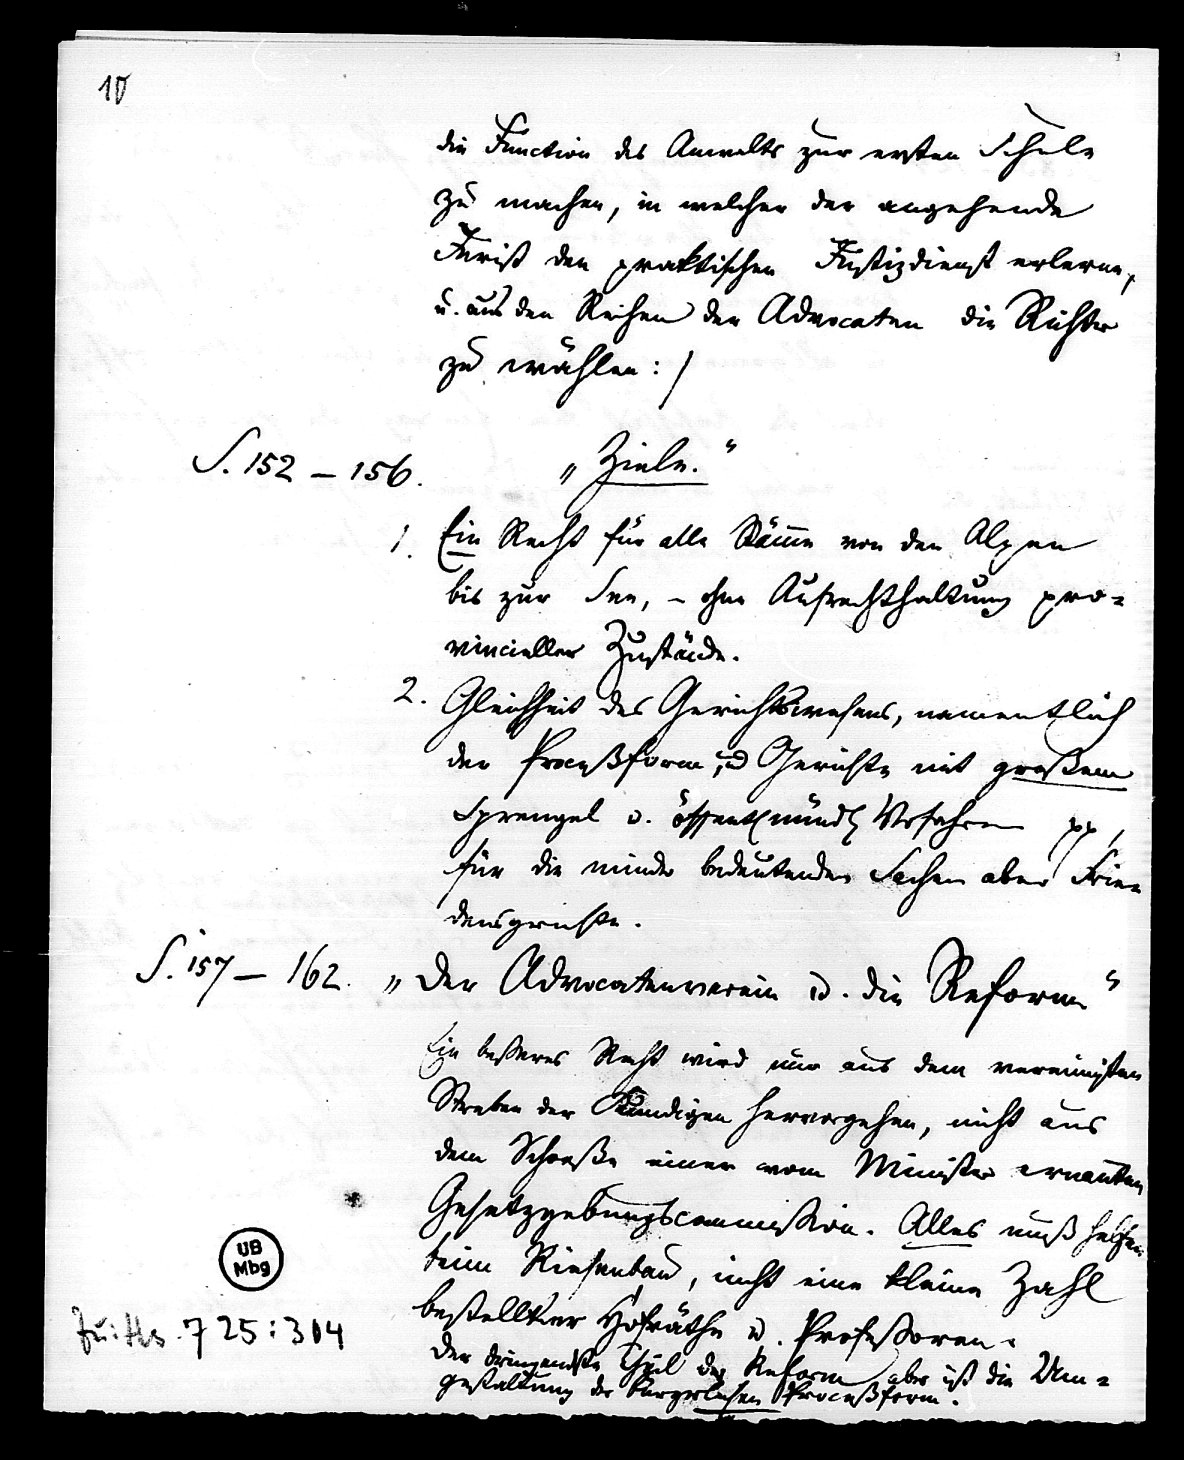 10
die Function des Anwalts zur ersten Schule
zu machen, in welcher der angehende
Jurist den praktischen Justizdienst erlerne,
u. aus den Reihen der Advocaten die Richter
zu wählen :/
S. 152 – 156. „Ziele.“
1. Ein Recht für alle Stämme von den Alpen
bis zur See, – ohne Aufrechthaltung pro-
vincieller Zustände.
2. Gleichheit des Gerichtswesens, namentlich
der Proceßform, u Gerichte mit großem
Sprengel u. öffentl mündl Verfahren pp,
für die minder bedeutenden Sachen aber Frie-
densgerichte.
S. 157 – 162. „Der Advocatenverein u. die Reform“
Ein besseres Recht wird nur aus dem vereinigten
Streben der Kundigen hervorgehen, nicht aus
dem Schooße einer vom Minister ernannten
Gesetzgebungscommission. Alles muß helfen
beim Riesenbau, nicht eine kleine Zahl
bestellter Hofräthe u. Professoren.
Der dringendste Theil der Reform aber ist die Um-
gestaltung der bürgerlichen Proceßform.
UB
Mbg
zu: Hs. 725:304